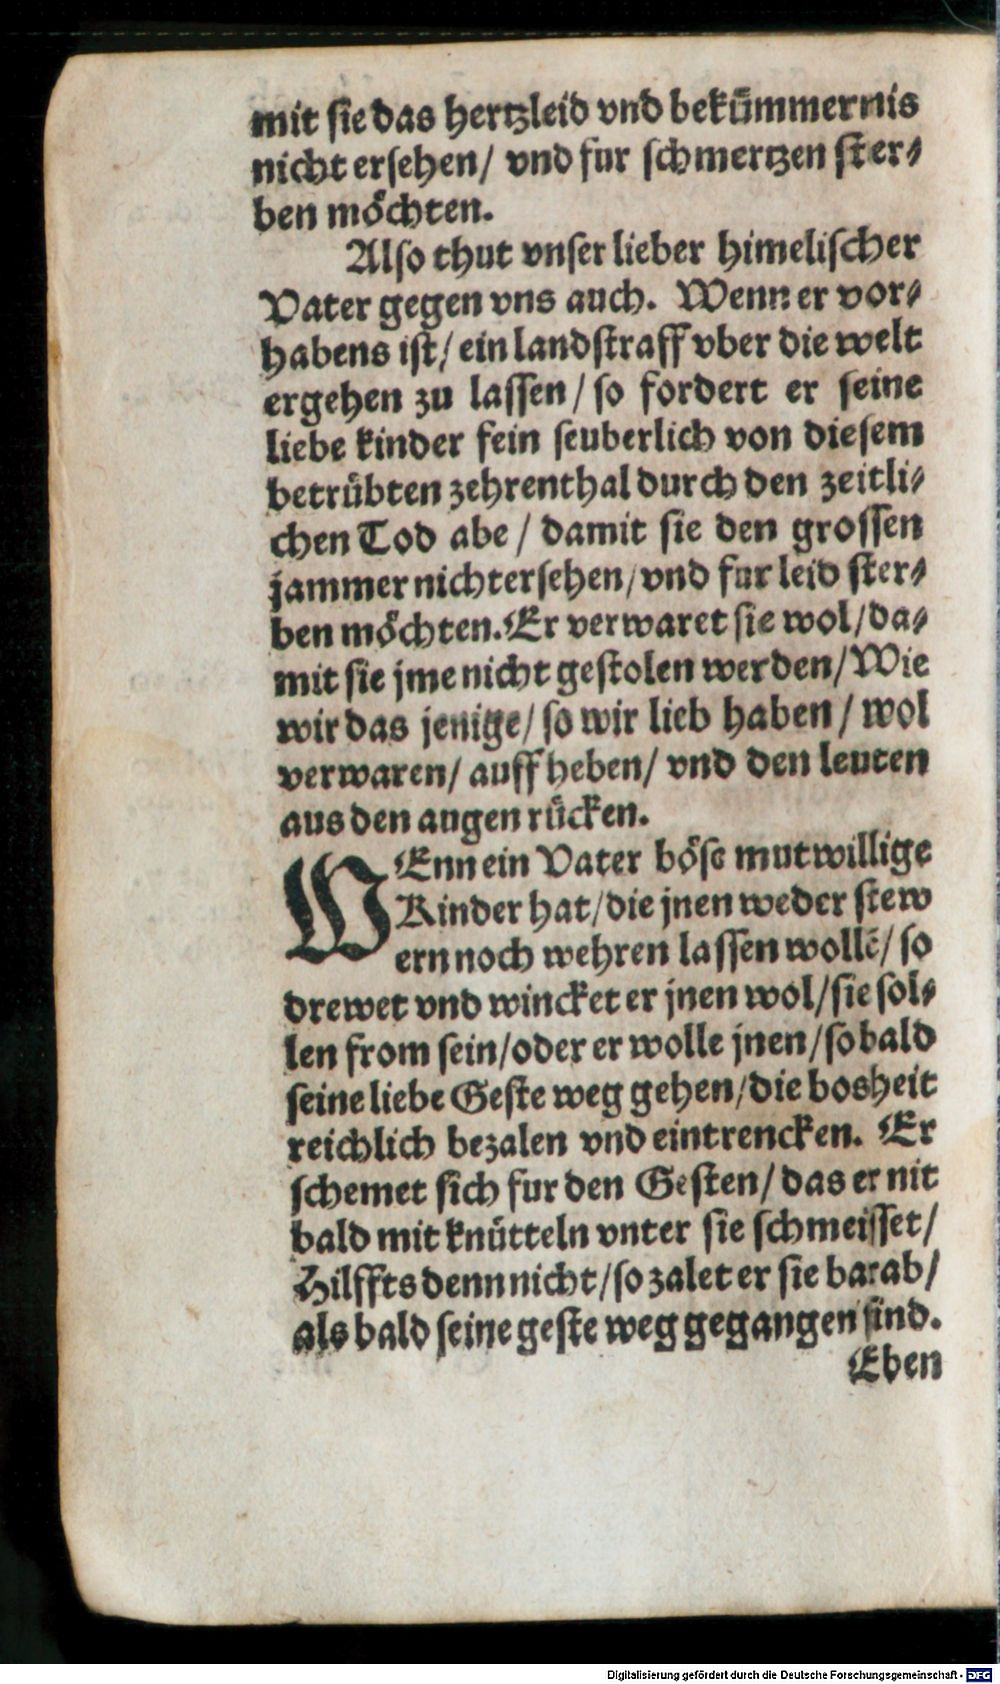 mit sie das hertzleid vnd bekümmernis
nicht ersehen/ vnd fur schmertzen ster⸗
ben möchten.
Also thut vnser lieber himelischer
Vater gegen vns auch. Wenn er vor⸗
habens ist/ ein landstraff vber die welt
ergehen zu lassen/ so fordert er seine
liebe kinder fein seuberlich von diesem
betrübten zehrenthal durch den zeitli⸗
chen Tod abe/ damit sie den grossen
jammer nicht ersehen/ vnd fur leid ster⸗
ben möchten. Er verwaret sie wol/ da⸗
mit sie jme nicht gestolen werden/ Wie
wir das jenige/ so wir lieb haben/ wol
verwaren/ auffheben/ vnd den leuten
aus den augen rücken.
WEnn ein Vater böse mutwillige
Kinder hat/ die jnen weder stew
ern noch wehren lassen wollē/ so
drewet vnd wincket er jnen wol/ sie sol⸗
len from sein/ oder er wolle jnen/ so bald
seine liebe Geste weg gehen/ die bosheit
reichlich bezalen vnd eintrencken. Er
schemet sich fur den Gesten/ das er nit
bald mit knütteln vnter sie schmeisset/
Hilffts denn nicht/ so zalet er sie barab/
als bald seine geste weg gegangen sind.
Eben
Digitalisierung gefördert durch die Deutsche Forschungsgemeinschaft - DFG